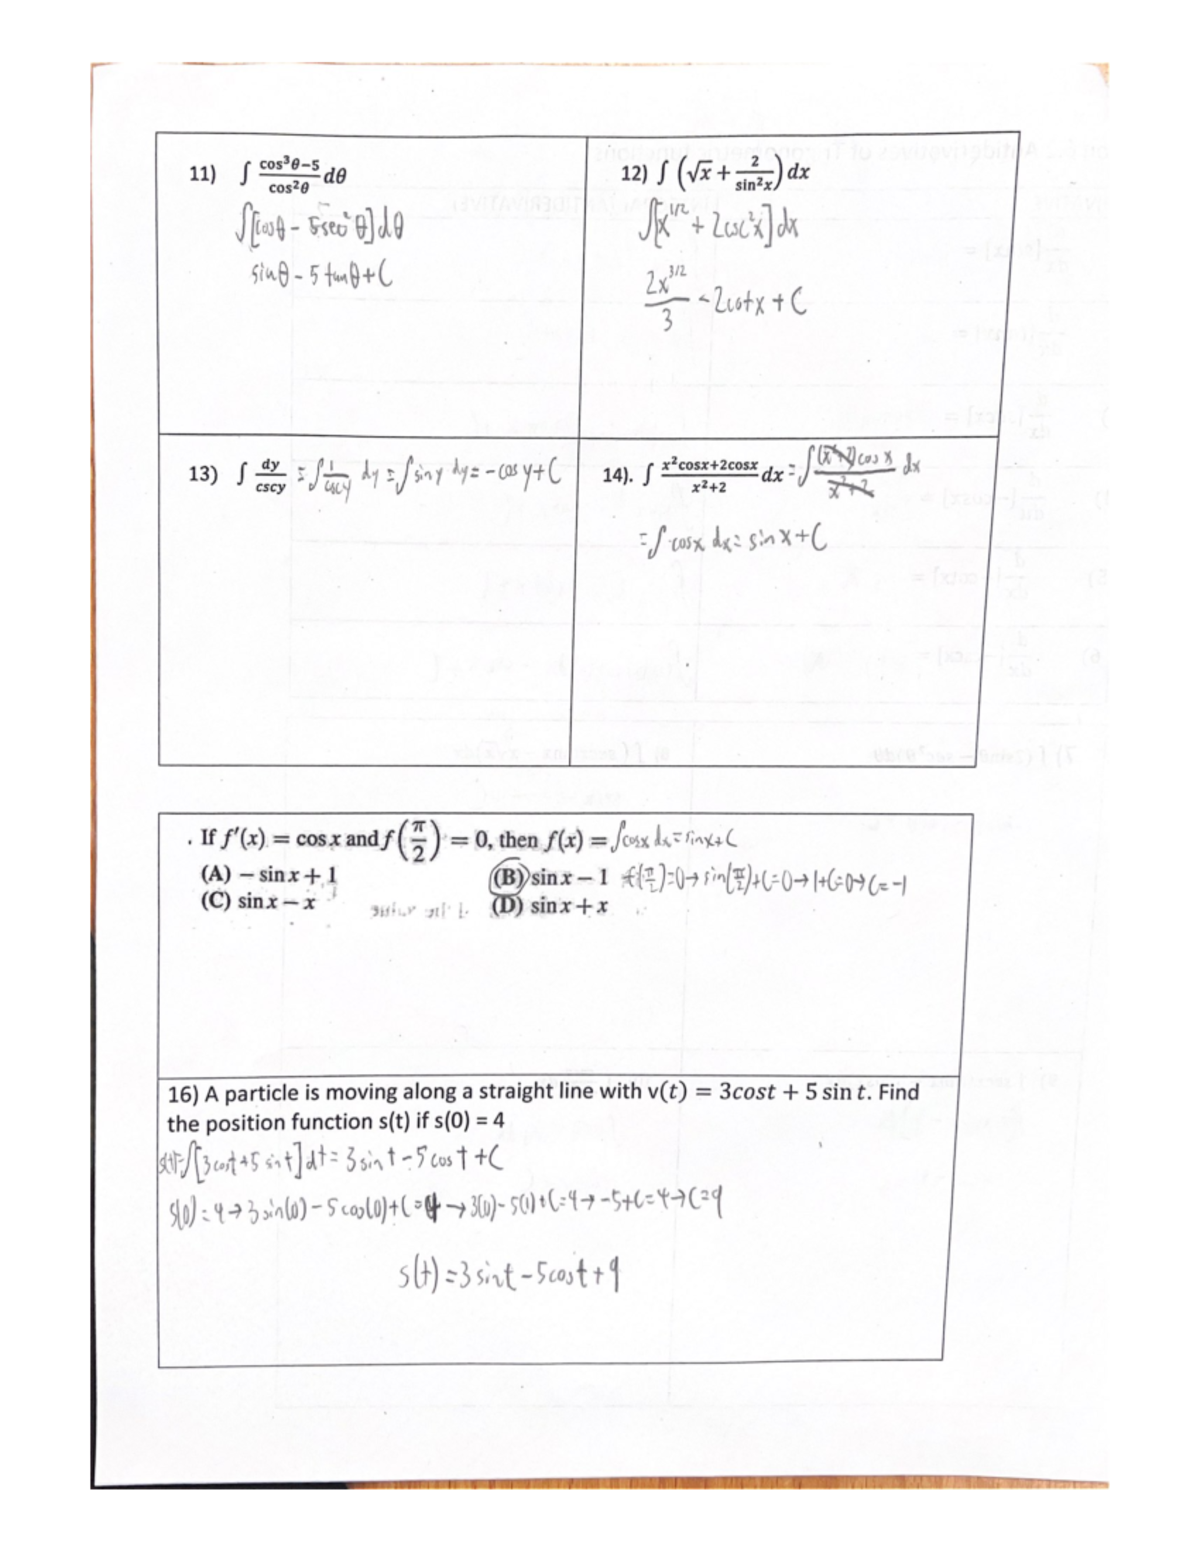 11) ∫ (cos³θ−5)/(cos²θ) dθ
∫[cosθ - 5sec²θ]dθ
sinθ - 5 tanθ + C
12) ∫ (√x + 2/sin²x) dx
∫[x^1/2 + 2csc²x]dx
2x^3/2 / 3 - 2cotx + C
13) ∫ dy/cscy = ∫ 1/cscy dy = ∫ sin y dy = -cos y + C
14). ∫ (x²cosx+2cosx)/(x²+2) dx = ∫ (x²+2)cos x / (x²+2) dx
= ∫ cosx dx = sin x + C
. If f′(x) = cos x and f(π/2) = 0, then f(x) = ∫cosx dx = sinx + C
(A) − sin x + 1 (B) sin x − 1 f(π/2)=0→ sin(π/2)+C=0→1+C=0→C=-1
(C) sin x − x (D) sin x + x
16) A particle is moving along a straight line with v(t) = 3cost + 5 sin t. Find
the position function s(t) if s(0) = 4
s(t)=∫[3cost+5sint]dt = 3sint - 5cost + C
s(0)=4→3sin(0)-5cos(0)+C=4→3(0)-5(1)+C=4→-5+C=4→C=9
s(t)=3sint-5cost+9